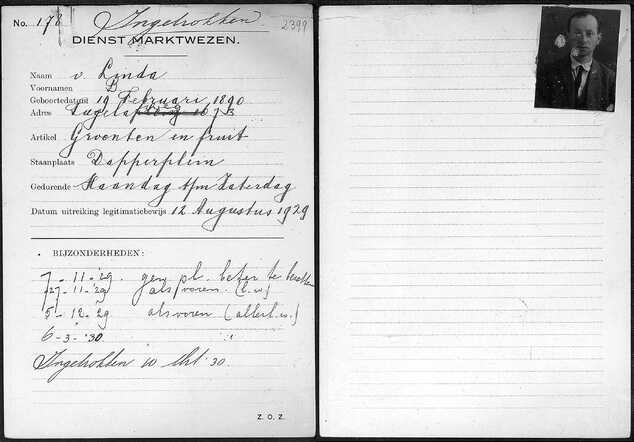 No. 178 Ingetrokken. 2399
DIENST MARKTWEZEN.
Naam v. Linda
Voornamen B
Geboortedatum 19 Februari 1890
Adres weg 107 B
Artikel Groenten en fruit
Staanplaats Dapperplein
Gedurende Maandag t/m Zaterdag
Datum uitreiking legitimatiebewijs 12 Augustus 1929
BIJZONDERHEDEN:
7-11-'29. gen. pl. beter te bezetten
27-11-'29 als voren. (l.w)
5-12-29 als voren (allerl.w.)
6-3-'30 " "
Ingetrokken 10 Okt '30.
Z.O.Z.